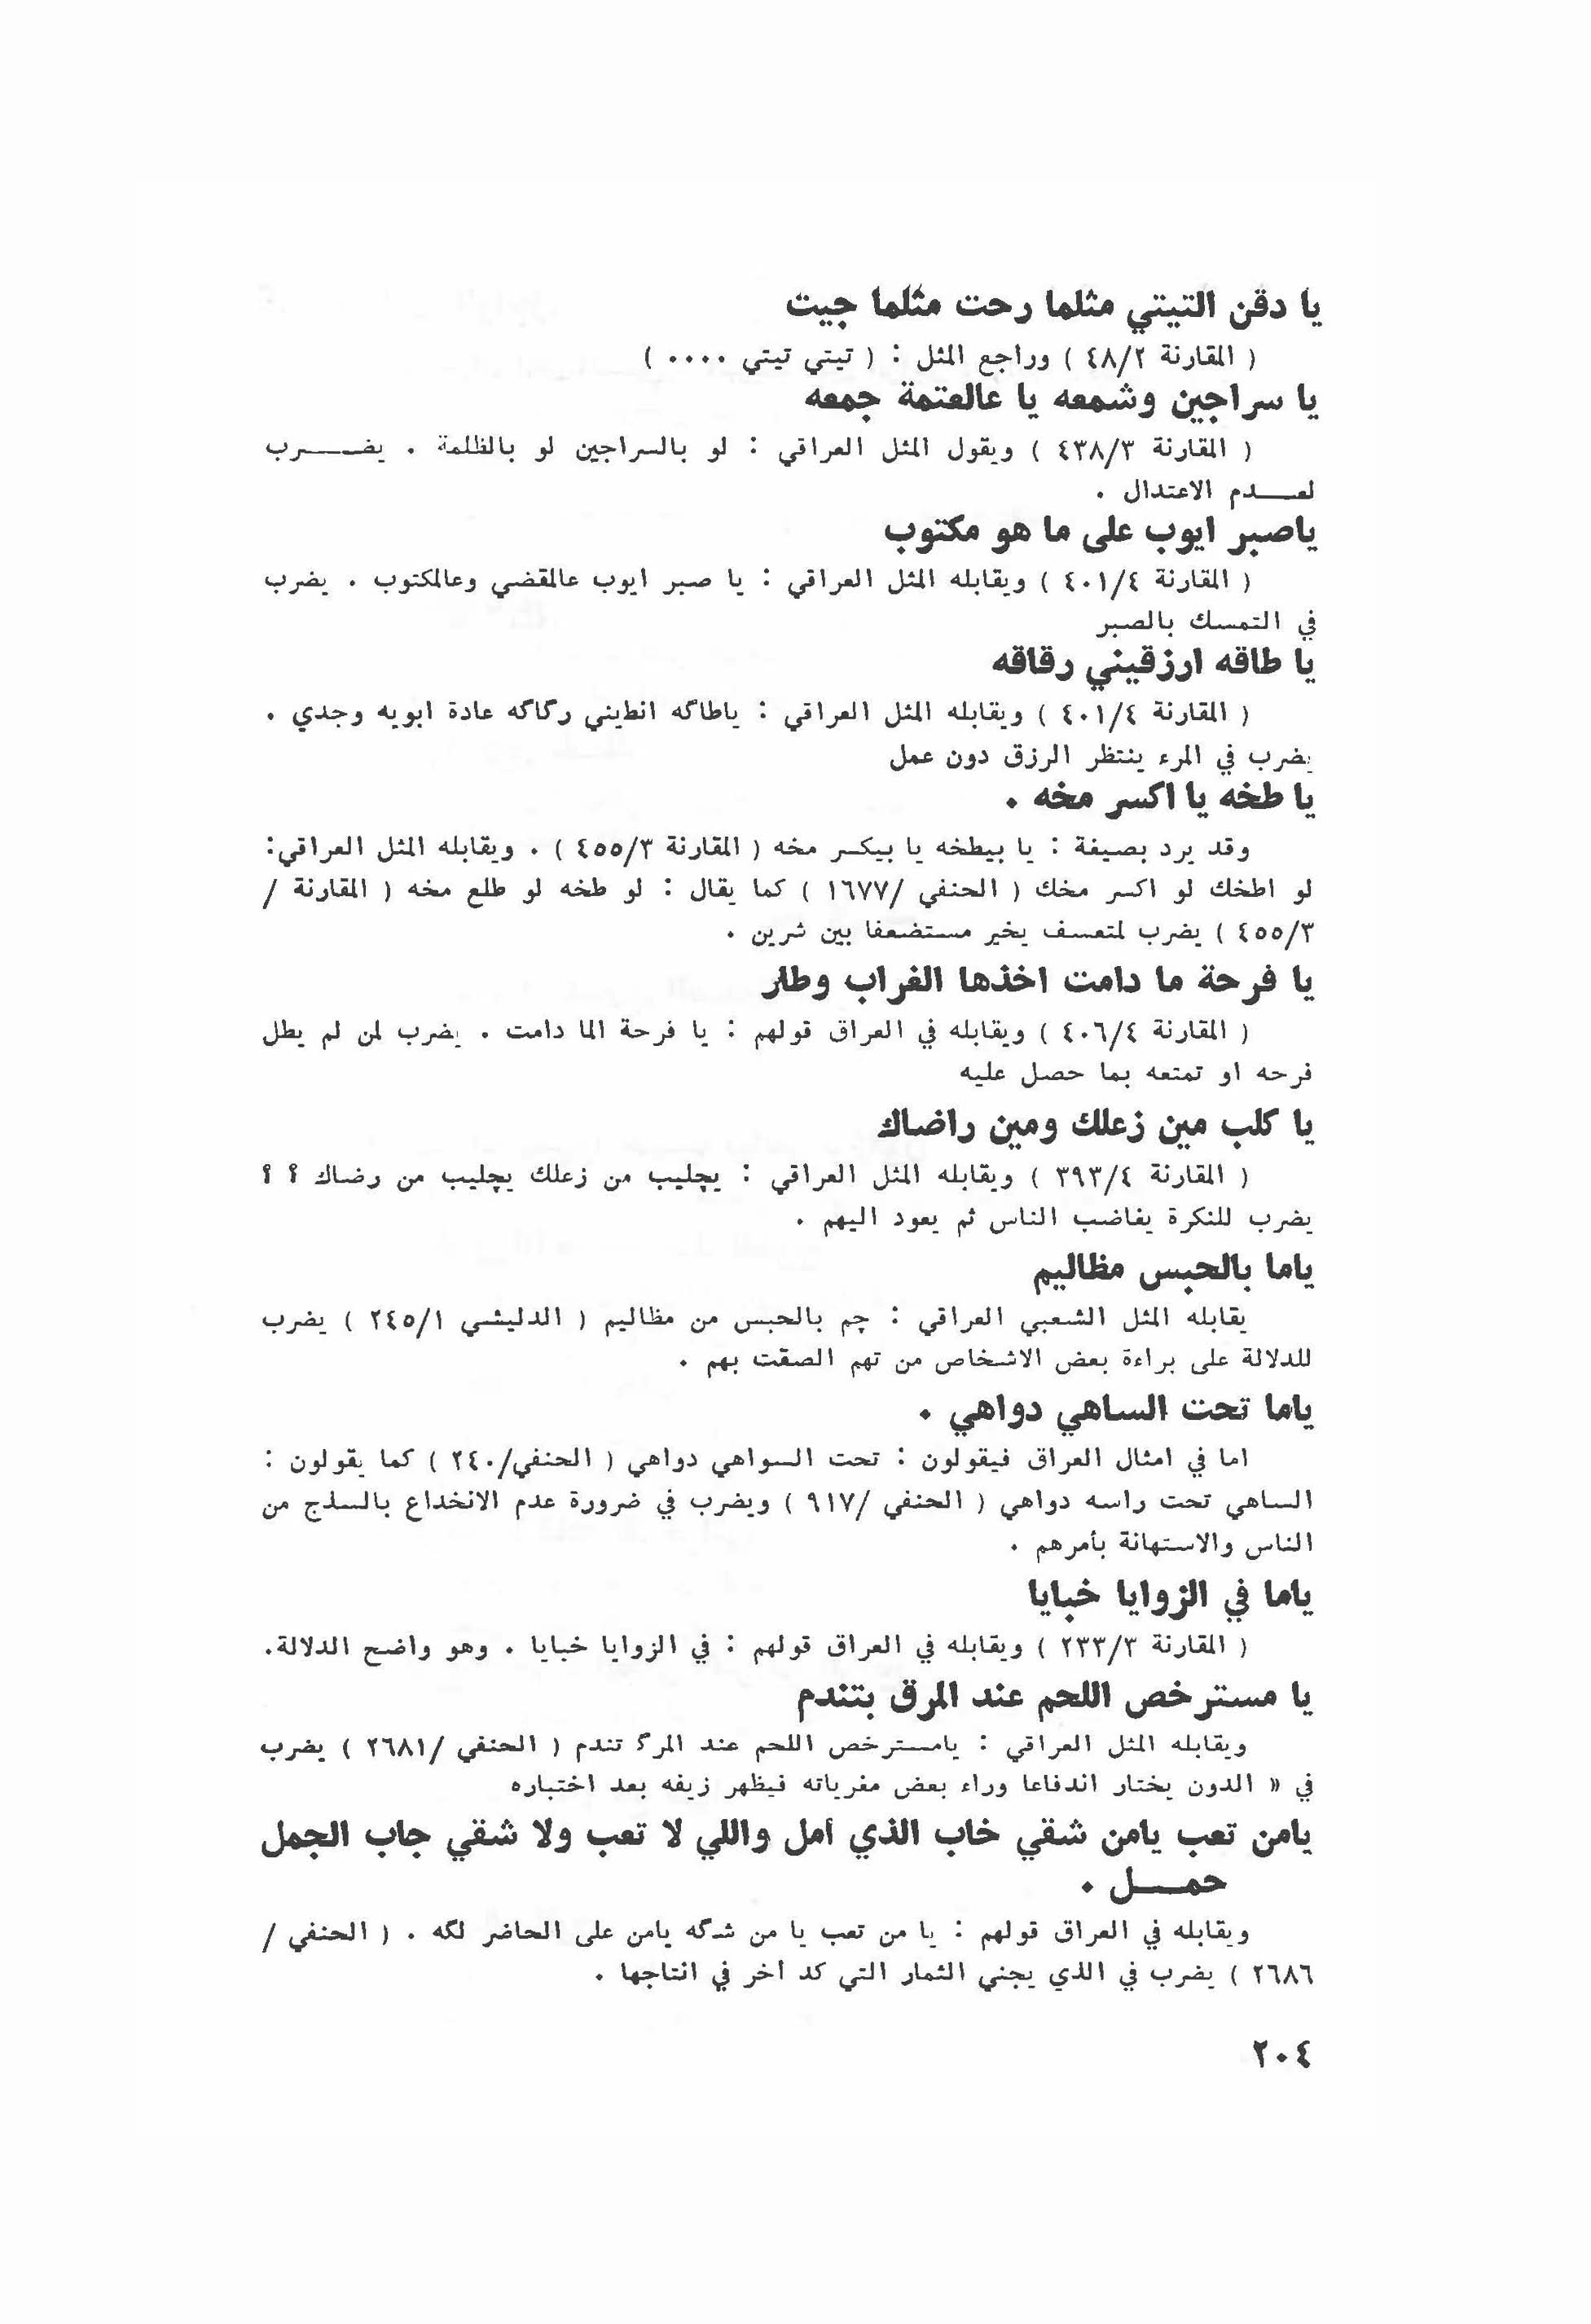 يا دقن التيتي مثلما رحت مثلما جيت
( المقارنة ٤٨/٢ ) وراجع المثل : ( تيتي تيتي ٠٠٠٠ )
يا سراجين وشمعه يا عالعتمة جمعه
( المقارنة ٤٣٨/٣ ) ويقول المثل العراقي : لو بالسراجين لو بالظلمة . يضـــرب
لعـــدم الاعتدال .
ياصبر ايوب على ما هو مكتوب
( المقارنة ٤٠١/٤ ) ويقابله المثل العراقي : يا صبر ايوب عالمقضي وعالمكتوب . يضرب
في التمسك بالصبر
يا طاقه ارزقيني رقاقه
( المقارنة ٤٠١/٤ ) ويقابله المثل العراقي : ياطاگه انطيني رگاگه عادة ابويه وجدي .
يضرب في المرء ينتظر الرزق دون عمل
يا طخه يا اكسر مخه .
وقد يرد بصيغة : يا بيطخه يا بيكسر مخه ( المقارنة ٤٥٥/٣ ) . ويقابله المثل العراقي:
لو اطخك لو اكسر مخك ( الحنفي /١٦٧٧ ) كما يقال : لو طخه لو طلع مخه ( المقارنة /
٤٥٥/٣ ) يضرب لمتعسف يخير مستضعفا بين شرين .
يا فرحة ما دامت اخذها الغراب وطار
( المقارنة ٤٠٦/٤ ) ويقابله في العراق قولهم : يا فرحة الما دامت . يضرب لمن لم يطل
فرحه او تمتعه بما حصل عليه
يا كلب مين زعلك ومين راضاك
( المقارنة ٣٩٣/٤ ) ويقابله المثل العراقي : يچليب من زعلك يچليب من رضاك ؟ ؟
يضرب للنكرة يغاضب الناس ثم يعود اليهم .
ياما بالحبس مظاليم
يقابله المثل الشعبي العراقي : چم بالحبس من مظاليم ( الدليشي ٢٤٥/١ ) يضرب
للدلالة على براءة بعض الاشخاص من تهم الصقت بهم .
ياما تحت الساهي دواهي .
اما في امثال العراق فيقولون : تحت السواهي دواهي ( الحنفي/٢٤٠ ) كما يقولون :
الساهي تحت راسه دواهي ( الحنفي /٩١٧ ) ويضرب في ضرورة عدم الانخداع بالسلج من
الناس والاستهانة بأمرهم .
ياما في الزوايا خبايا
( المقارنة ٢٣٣/٣ ) ويقابله في العراق قولهم : في الزوايا خبايا . وهو واضح الدلالة.
يا مسترخص اللحم عند المرق بتندم
ويقابله المثل العراقي : يامسترخص اللحم عند المرگ تندم ( الحنفي /٢٦٨١ ) يضرب
في « الدون يختار اندفاعا وراء بعض مغرياته فيظهر زيفه بعد اختباره
يامن تعب يامن شقي خاب الذي أمل واللي لا تعب ولا شقي جاب الجمل
حمـــل .
ويقابله في العراق قولهم : يا من تعب يا من شگه يامن على الحاضر لگه . ( الحنفي /
٢٦٨٦ ) يضرب في الذي يجني الثمار التي كد أخر في انتاجها .
٢٠٤